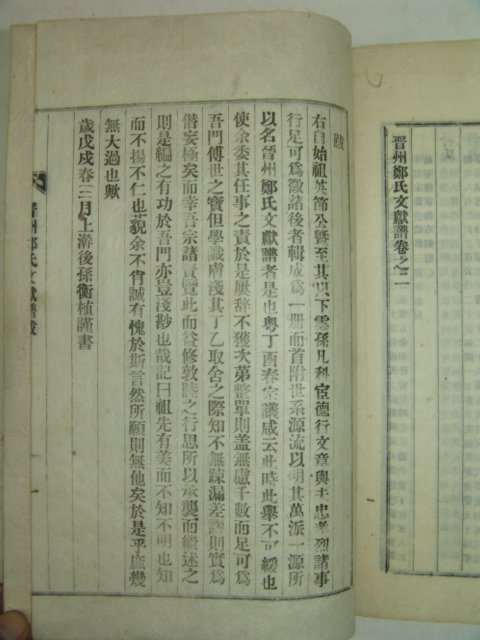 晋州鄭氏文獻譜卷之二
跋
右自始祖英節公曁至其以下雲孫凡科宦德行文章與夫忠孝烈諸事
行足可爲徵諸後者輯成爲一册而首附世系源流以明其萬派一源所
以名晋州鄭氏文獻譜者是也粤丁酉春宗議咸云此時此擧不可緩也
使余委其任事之責於是屢辞不獲次第整單則盖無慮千數而足可爲
吾門傳世之寶但學識膚淺其丁乙取舍之際知不無踈漏差謬則實爲
僭妄極矣而幸吾宗諸賢覽此而益修敦睦之行思所以承襲而繼述之
則是編之有功於吾門亦豈淺尠也哉記曰祖先有美而不知不明也知
而不揚不仁也藐余不肖誠有愧於斯言然所願則無他矣於是乎庶幾
無大過也歟
歲戊戌春三月上澣後孫衡植謹書
晋州鄭氏文獻譜跋